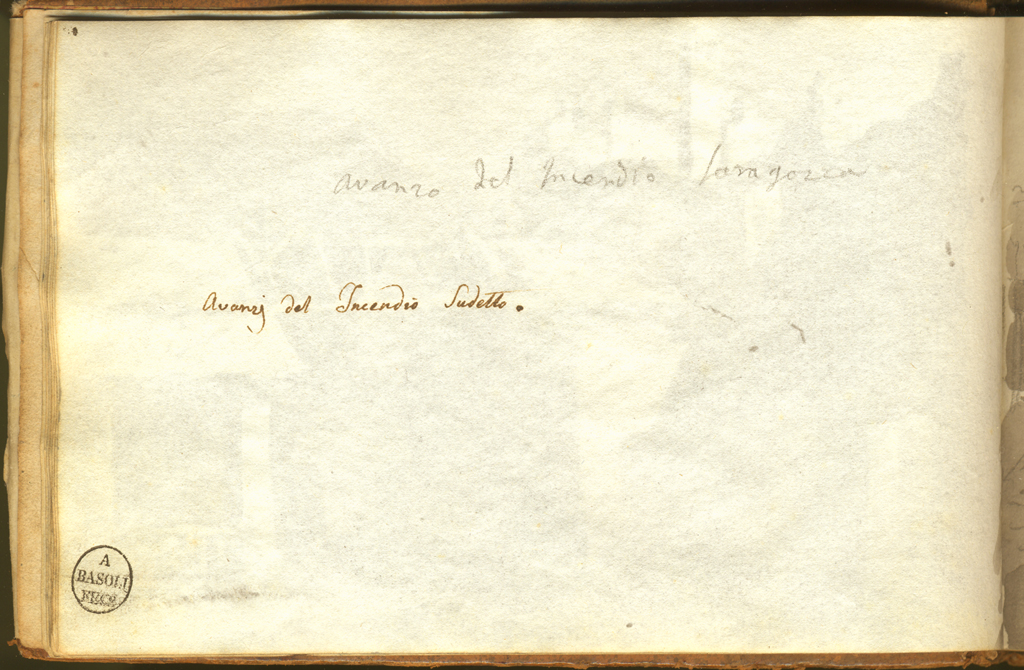 avanzo del Incendio Saragozza
Avanzj del Incendio Sudetto.
A
BASOLI
FECE